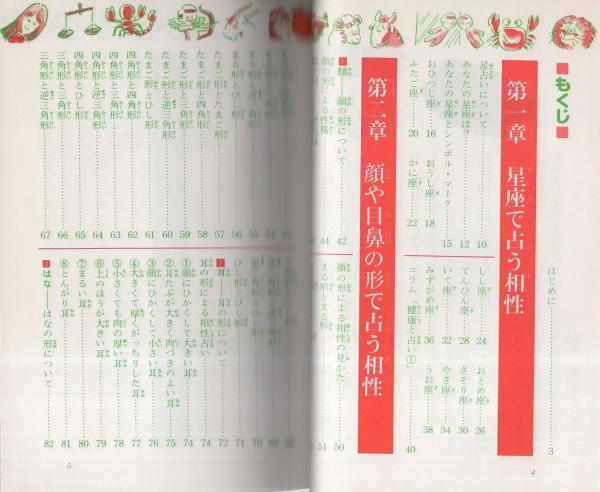 ■もくじ■
はじめに 3
第一章 星座で占う相性
星占いについて 10
あなたの星座は? 12
あなたの星座とシンボル・マーク 15
おひつじ座 16
おうし座 18
ふたご座 20
かに座 22
しし座 24
おとめ座 26
てんびん座 28
さそり座 30
いて座 32
やぎ座 34
みずがめ座 36
うお座 38
コラム「健康と占い①」 40
第二章 顔や目鼻の形で占う相性
1 顔――顔の形について 42
顔の形による性格 44
顔の形による相性の見かた 50
まる形とまる形 51
4
まる形とひし形 56
たまご形とたまご形 57
たまご形と四角形 58
たまご形と三角形 59
たまご形と逆三角形 60
たまご形とひし形 61
四角形と四角形 62
四角形と三角形 63
四角形と逆三角形 64
四角形とひし形 65
三角形と三角形 66
三角形と逆三角形 67
ひし形とひし形 71
2 耳――耳の形について 72
耳の形による相性占い 74
①顔にひかくして大きい耳 74
②耳たぶが大きく肉づきのよい耳 75
③顔にひかくして小さい耳 76
④大きくて厚くがっちりした耳 77
⑤小さくても肉の厚い耳 78
⑥上のほうが大きい耳 79
⑦まるい耳 80
⑧とんがり耳 81
3 はな――はなの形について 82
5